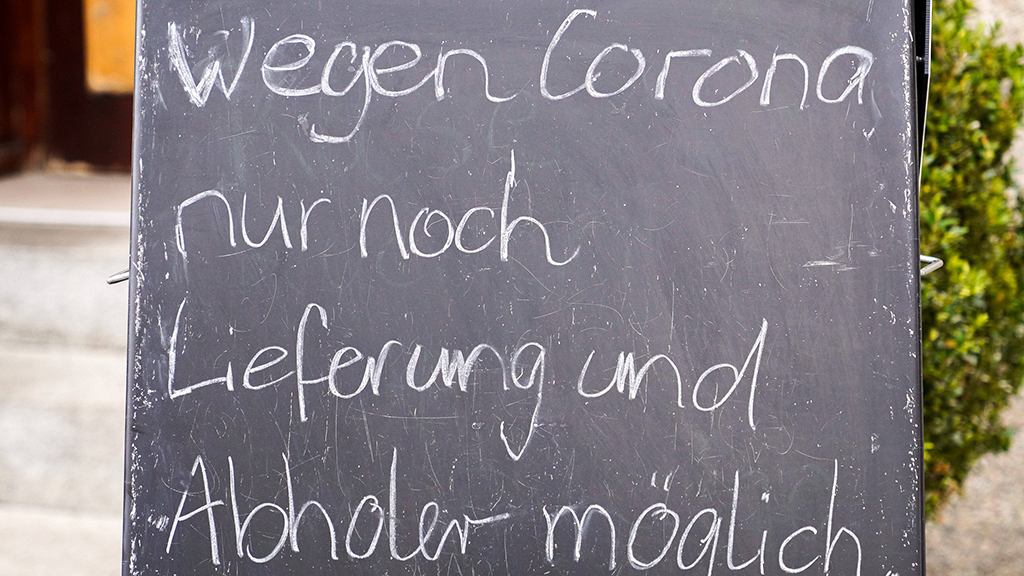 Wegen Corona
nur noch
Lieferung und
Abholer möglich